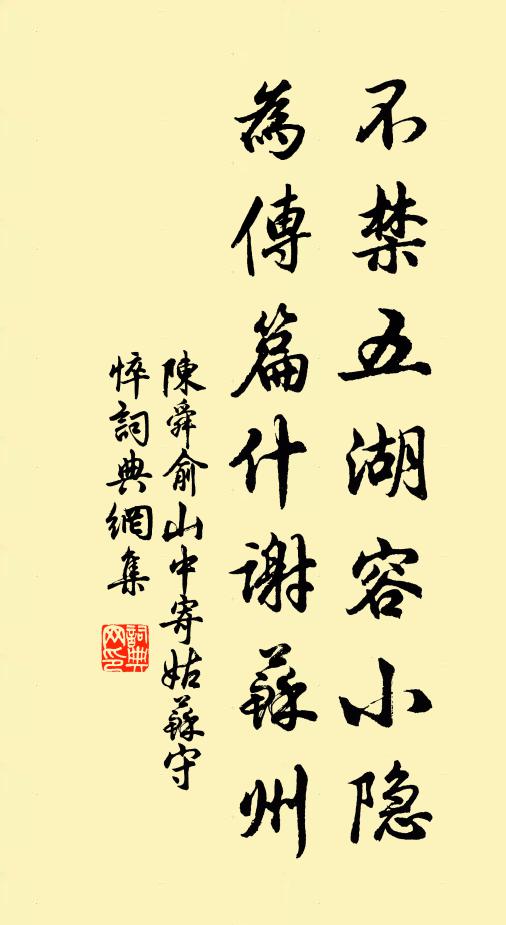 不禁五湖容小隐
為傳篇什謝蘇州
陳舜俞山中寄姑蘇守
悴詞典網集
詞典网印